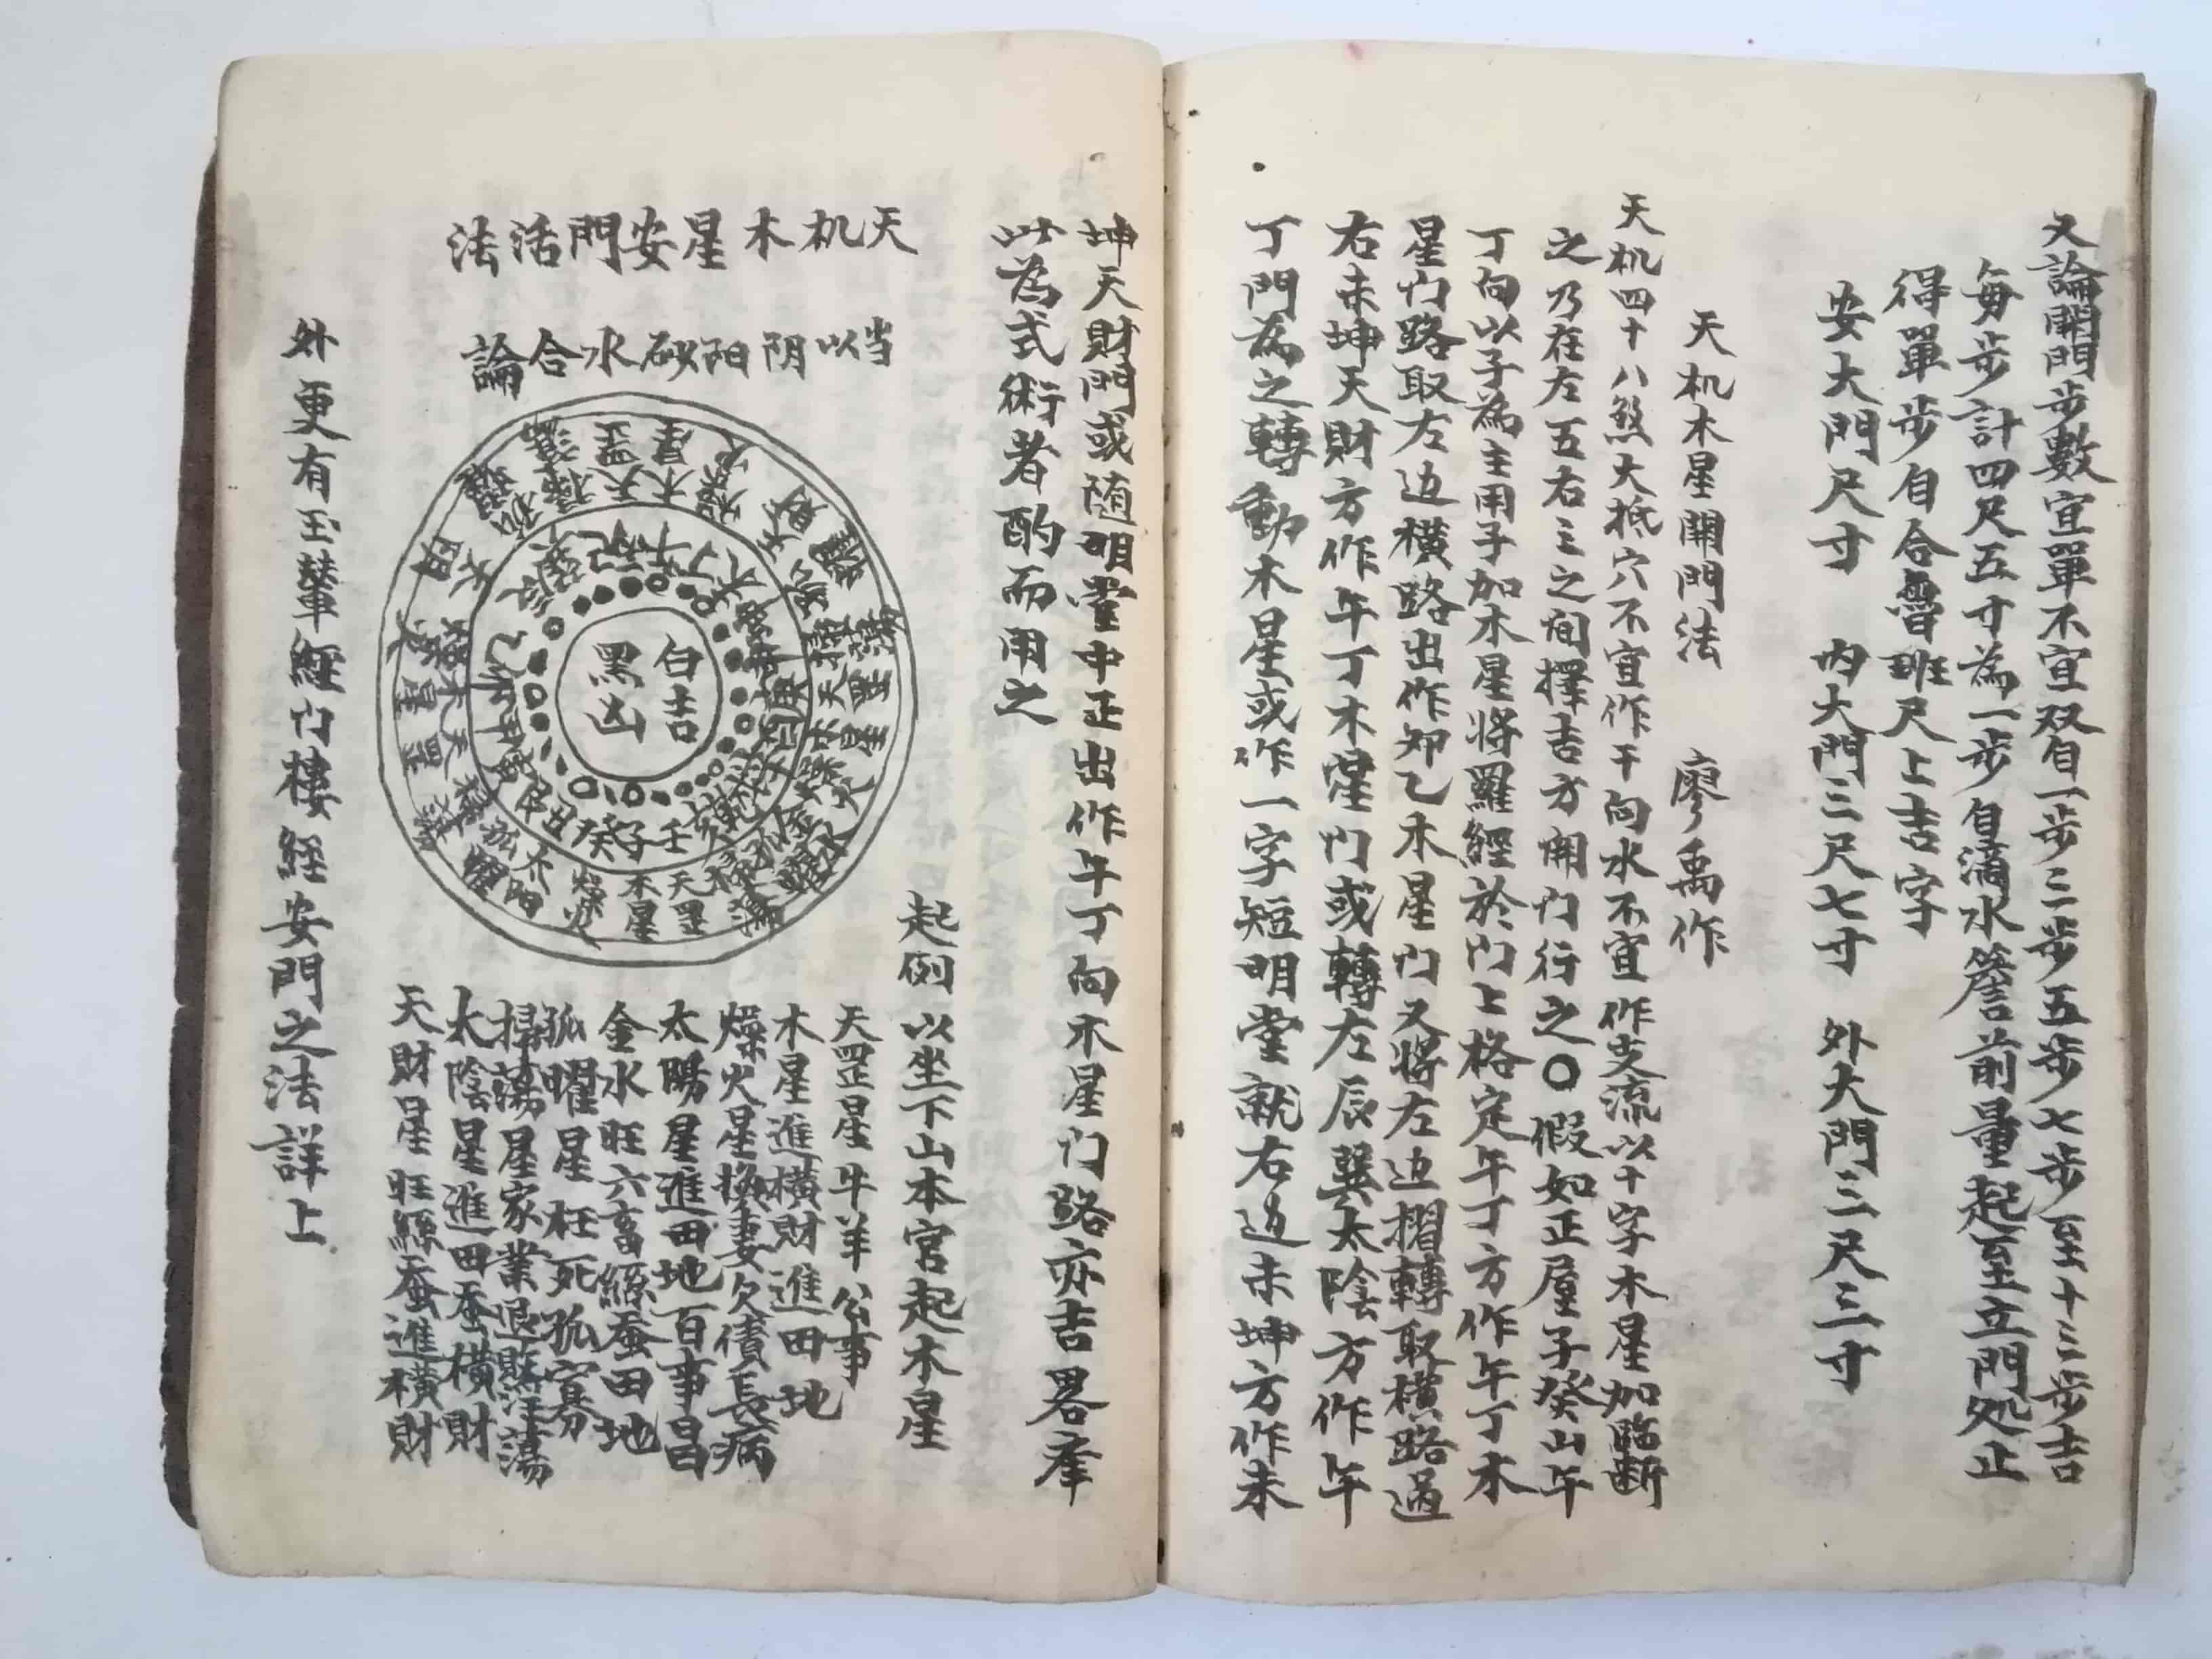 又論開門步數宜單不宜双自一步三步五步七步至十三步吉
每步計四尺五寸為一步自滴水簷前量起至立門処止
得單步自合魯班尺上吉字
安大門尺寸　内大門三尺七寸　外大門三尺三寸
天机木星開門法　廖禹作
天机四十八煞大抵穴不宜作干向水不宜作支流以十字木星加臨断
之乃在左五右三之间擇吉方開门行之〇假如正屋子癸山午
丁向以子為主用子加木星将羅經於门上格定午丁方作午丁木
星门路取左边橫路出作卯乙木星门又将左边摺轉取橫路過
右未坤天財方作午丁木星门或轉左辰巽太陰方作午
丁門為之轉動木星或作一字短明堂就右边未坤方作未
坤天財門或随明堂中正出作午丁向木星门路亦吉畧舉
以為式術者酌而用之
天机木星安門活法
当以阴阳砂水合論
白吉
黑凶
壬子癸丑
天罡
木星
燥火
太陽
孤曜
起例以坐下山本宮起木星
天罡星牛羊公事
木星進橫財進田地
燥火星換妻欠債長病
太陽星進田地百事昌
金水旺六畜絲蚕田地
孤曜星枉死孤寡
掃蕩星家業退蕩
太陰星進田蚕橫財
天財星旺絲蚕進橫財
外更有玉輦經门樓經安門之法詳上